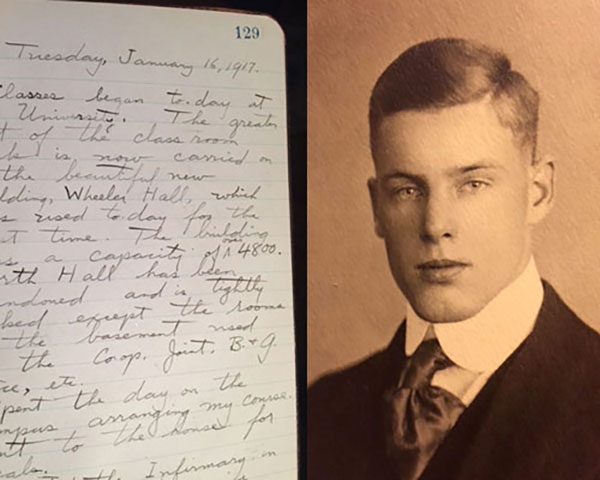 129
Tuesday, January 16, 1917.
Classes began to-day at
University. The greater
of the class room
is now carried on
the beautiful new
Wheeler Hall, which
used to-day for the
time. The building
a capacity of over 4800.
Hall has been
and is tightly
except the rooms
the basement used
the Co-op. Joint. B. + G.
etc.
the day on the
arranging my course.
to the house for
Infirmary in